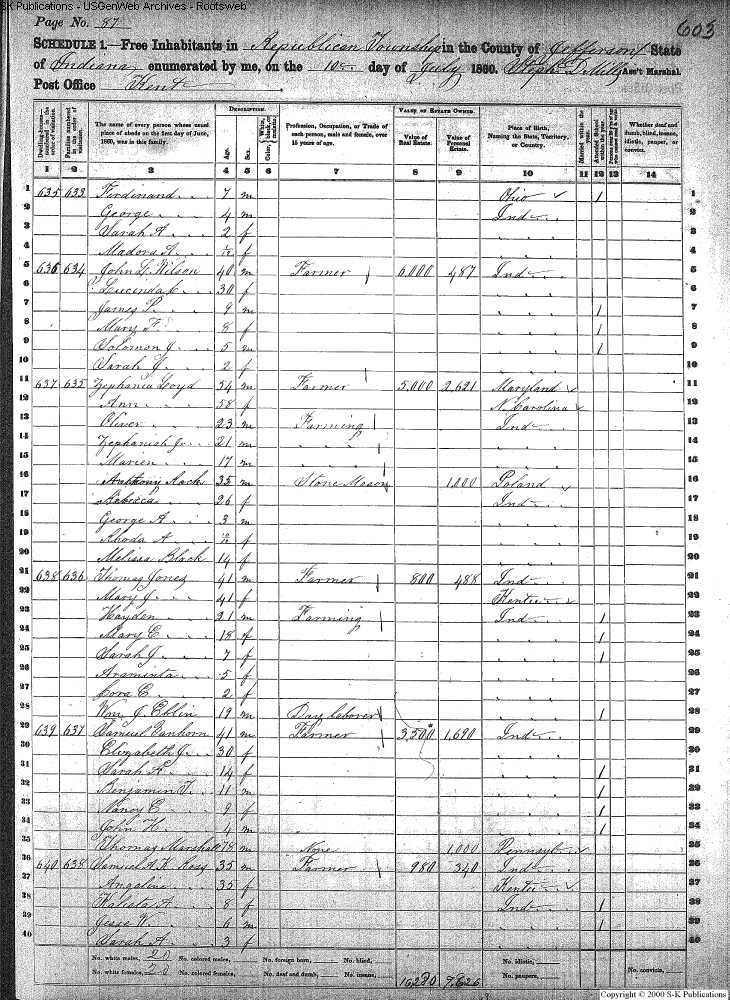 S-K Publications - USGenWeb Archives - Rootsweb
Page No. 87
603
SCHEDULE 1.—Free Inhabitants in Republican Township in the County of Jefferson State
of Indiana enumerated by me, on the 10 day of July 1860. Steph D Milly Ass't Marshal.
Post Office Kent
Dwelling-houses—numbered in the order of visitation. Families numbered in the order of visitation. The name of every person whose usual place of abode on the first day of June, 1860, was in this family. DESCRIPTION. Age. Sex. Color, White, black, or mulatto. Profession, Occupation, or Trade of each person, male and female, over 15 years of age. VALUE OF ESTATE OWNED. Value of Real Estate. Value of Personal Estate. Place of Birth, Naming the State, Territory, or Country. Married within the year. Attended School within the year. Whether deaf and dumb, blind, insane, idiotic, pauper, or convict.
1 2 3 4 5 6 7 8 9 10 11 12 13 14
1 635 633 Ferdinand 7 m Ohio / 1
2 George 4 m Ind 2
3 Sarah A 2 f 3
4 Madora A. 1/12 f 4
5 636 634 John L. Wilson 40 m Farmer 6,000 487 Ind 5
6 Lucinda 30 f 6
7 James P. 9 m / 7
8 Mary F 8 f / 8
9 Solomon J. 5 m / 9
10 Sarah J. 2 f 10
11 637 635 Zephania Loyd 54 m Farmer 5,000 2,621 Maryland 11
12 Ann 58 f N. Carolina 12
13 Oliver 23 m Farming Ind 13
14 Zephaniah Jr 21 m " 14
15 Marien 17 m " 15
16 Anthony Rock 35 m Stone Mason 1,000 Poland 16
17 Rebecca 26 f Ind 17
18 George A 3 m 18
19 Rhoda A f 19
20 Melissa Black 14 f 20
21 638 636 Thomas Jones 41 m Farmer 800 488 Ind 21
22 Mary J. 41 f Kentu 22
23 Hayden 21 m Farming Ind / 23
24 Mary E. 18 f / 24
25 Sarah J 7 f / 25
26 Araminta 5 f 26
27 Cora E. 2 f 27
28 Wm J. Eblin 19 m Day laborer / 28
29 639 637 Samuel Vanhorn 41 m Farmer 3,500 1,690 Ind 29
30 Elizabeth J. 30 f 30
31 Sarah A. 14 f / 31
32 Benjamin F. 11 m / 32
33 Nancy E 9 f / 33
34 John H. 4 m / 34
35 Thomas Marshall 78 m None 1,000 Pennsylv 35
36 640 638 Samuel A. K. Ross 35 m Farmer 980 340 Ind 36
37 Angeline 35 f Kentu
38 Kalista A 8 f Ind / 38
39 Jesse W. 6 m / 39
40 Sarah A. 3 f 40
No. white males, 20 No. colored males, No. foreign born, No. blind, No. idiotic,
No. white females, 20 No. colored females, No. deaf and dumb, No. insane, 16280 7,626 No. paupers, No. convicts,
Copyright © 2000 S-K Publications